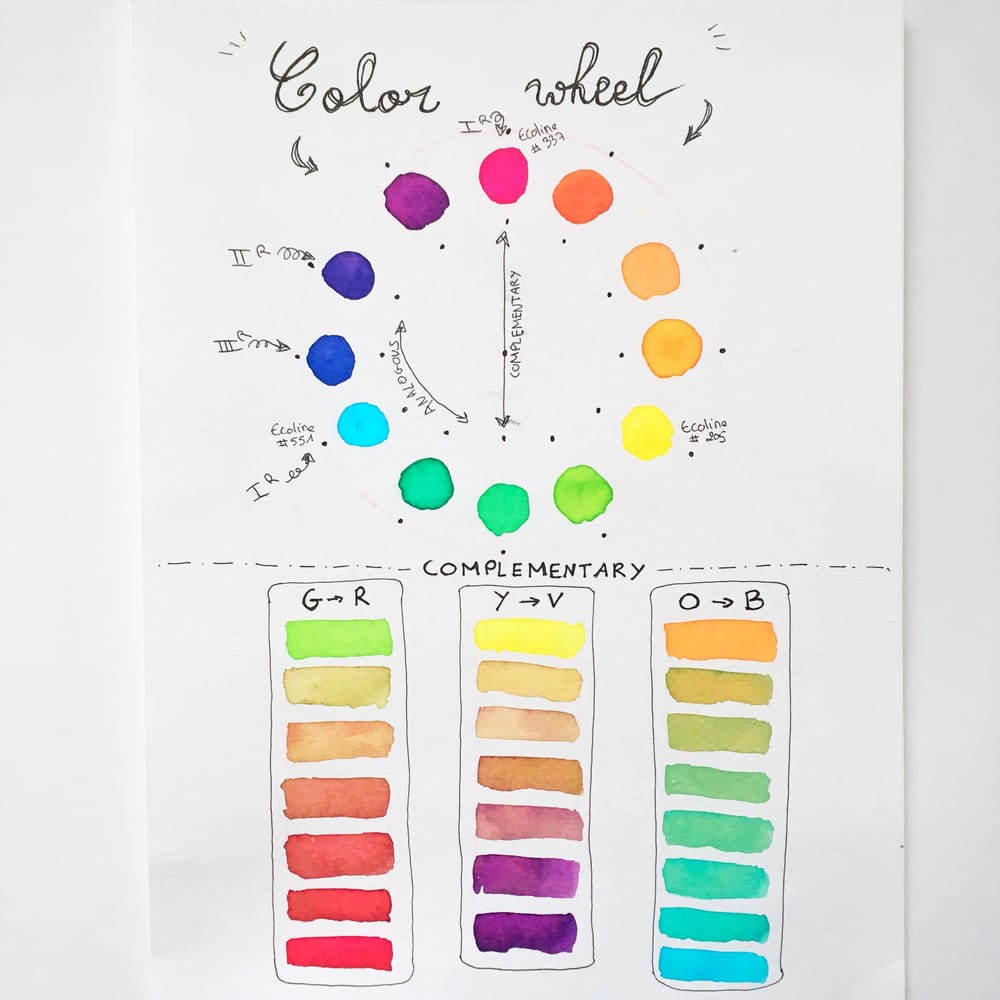 Color wheel
I R
Ecoline
# 337
II R
III R
COMPLEMENTARY
ANALOGOUS
Ecoline
#551
I R
Ecoline
# 205
COMPLEMENTARY
G→R
Y→V
O→B